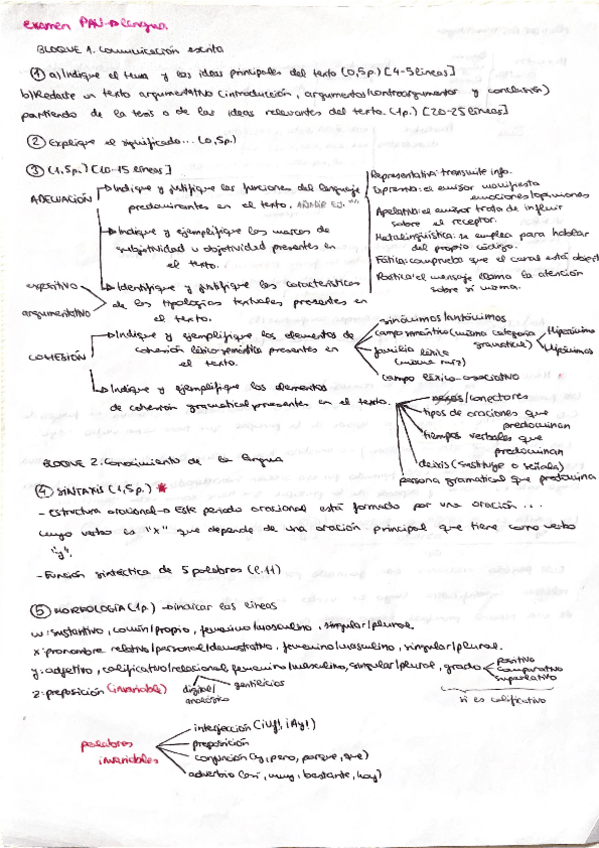 examen PAU → lengua.
BLOQUE 1. comunicación escrita
① a) Indique el tema y las ideas principales del texto (0,5p.) [4-5 líneas]
b) Redacte un texto argumentativo (introducción, argumentos/contraargumentos y conclusión)
partiendo de la tesis o de las ideas relevantes del texto. (1p.) [20-25 líneas]
② Explique el significado... (0,5p)
③ (1,5p.) [10-15 líneas]
ADECUACIÓN
Indique y justifique las funciones del lenguaje
predominantes en el texto. AÑADIR EJ.
Representativa: transmite info.
Expresiva: el emisor manifiesta
emociones/opiniones
Apelativa: el emisor trata de influir
sobre el receptor.
Metalingüística: se emplea para hablar
del propio código.
Fática: comprueba que el canal está abierto
Poética: el mensaje llama la atención
sobre sí misma.
Indique y ejemplifique las marcas de
subjetividad u objetividad presentes en
el texto.
expositivo
argumentativo
Identifique y justifique las características
de las tipologías textuales presentes en
el texto.
COHESIÓN
Indique y ejemplifique los elementos de
cohesión léxico-semántica presentes en
el texto.
sinónimos/antónimos
campo semántico (misma categoría
gramatical)
Hiperónimo
Hipónimos
familia léxica
(misma raíz)
campo léxico-asociativo
Indique y ejemplifique los elementos
de cohesión gramatical presentes en el texto.
nexos/conectores
tipos de oraciones que
predominan
tiempos verbales que
predominan
deixis (sustituye o señala)
persona gramatical que predomina
BLOQUE 2: Conocimiento de la lengua
④ SINTAXIS (1,5p.) *
- Estructura oracional → Este periodo oracional está formado por una oración ...
cuyo verbo es "x" que depende de una oración principal que tiene como verbo
"y".
- Función sintáctica de 5 palabras (l.11)
⑤ MORFOLOGÍA (1p.) → indicar las líneas
w: sustantivo, común/propio, femenino/masculino, singular/plural.
x: pronombre relativo/personal/demostrativo, femenino/masculino, singular/plural.
y: adjetivo, calificativo/relacional, femenino/masculino, singular/plural, grado
positivo
comparativo
superlativo
z: preposición (invariable)
digital/
analógico
gentilicios
si es calificativo
palabras
invariables
interjección (¡Uy!, ¡Ay!)
preposición
conjunción (y, pero, porque, que)
adverbio (así, muy, bastante, hoy)